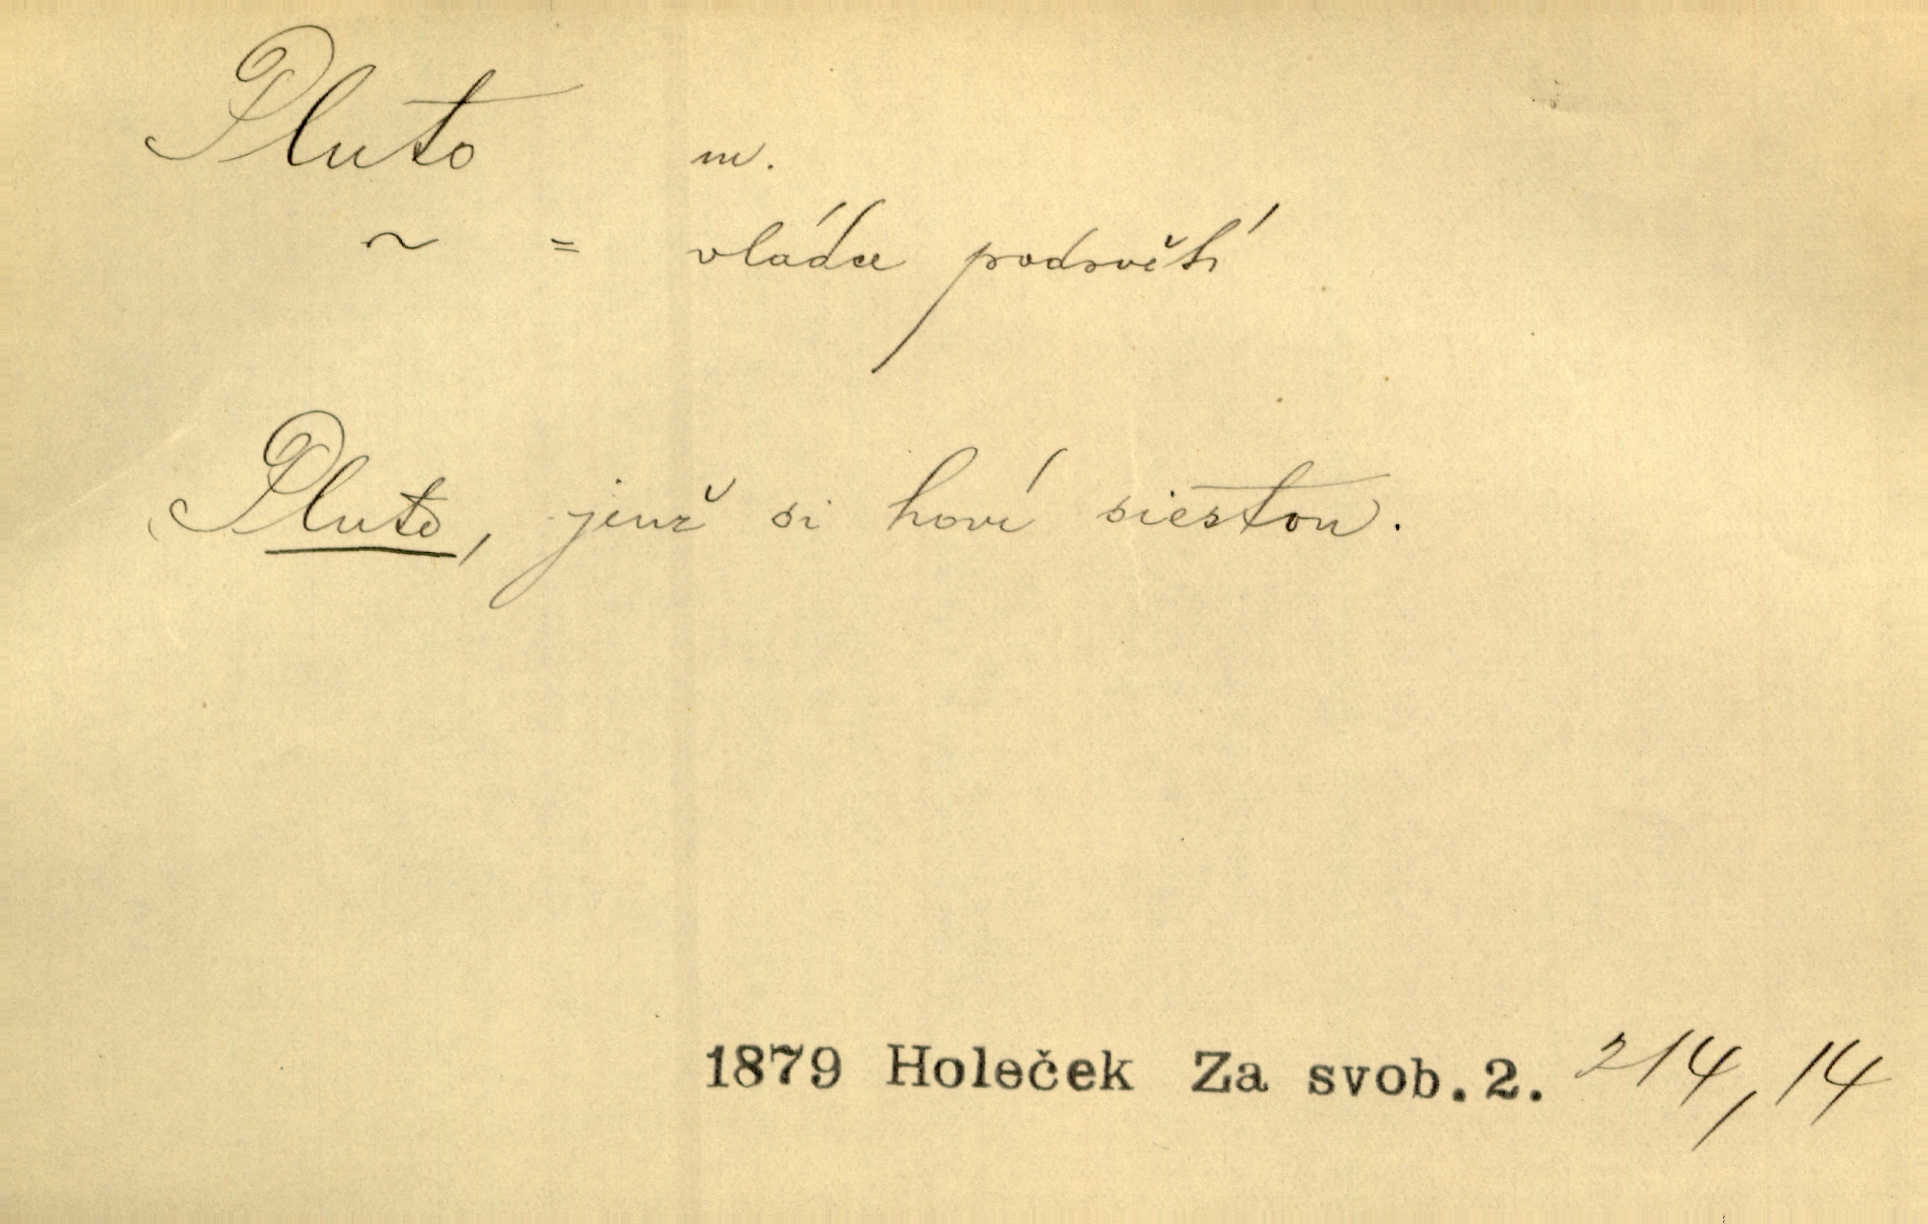 Pluto m.
~ = vládce podsvětí
Pluto, jenž si hoví siestou.
1879 Holeček Za svob. 2. 214, 14